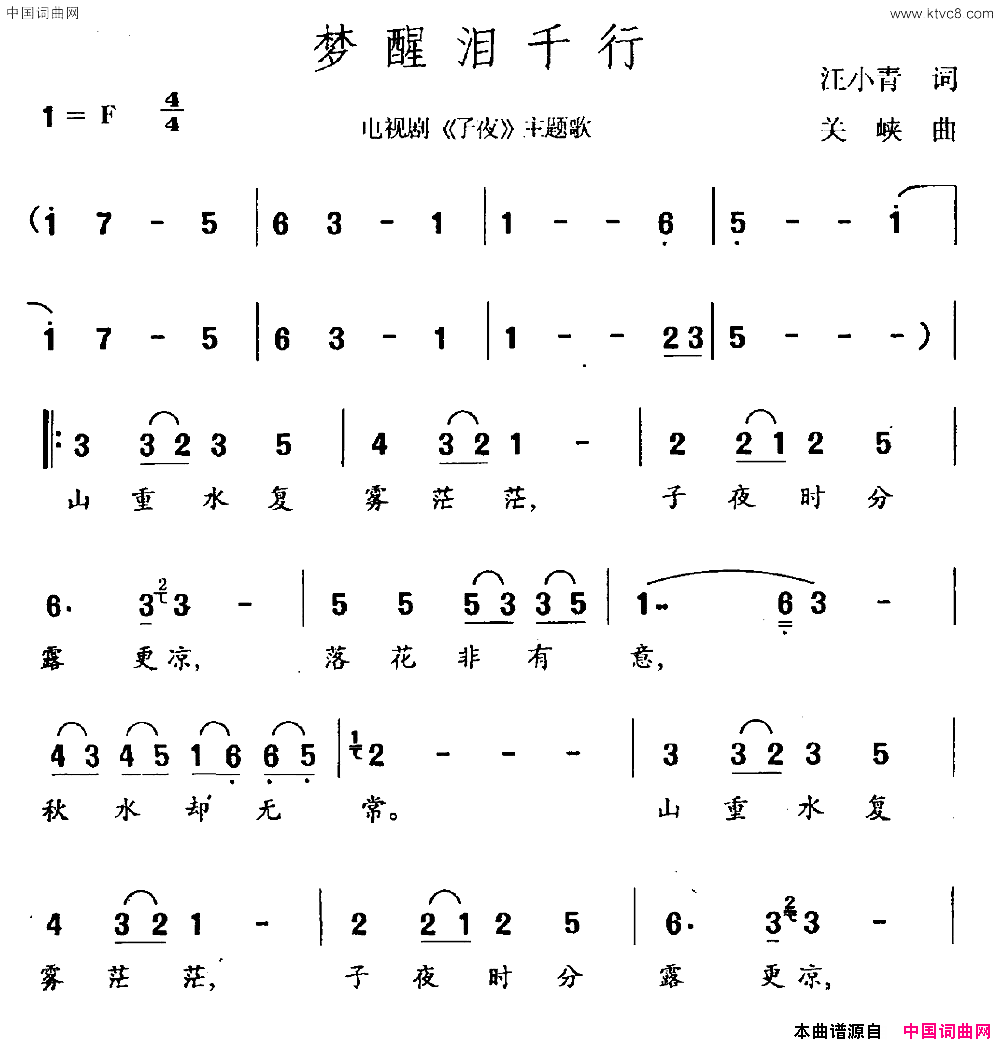 中国词曲网 www.ktvc8.com
梦醒泪千行
汪小青 词
1 = F 4/4
电视剧《子夜》主题歌
关峡 曲
(i 7 - 5 | 6 3 - 1 | 1 - - 6 | 5 - - i |
i 7 - 5 | 6 3 - 1 | 1 - - 2 3 | 5 - - - ) |
‖: 3 3 2 3 5 | 4 3 2 1 - | 2 2 1 2 5 |
山重水复 雾茫茫, 子夜时分
6. 3 2 3 - | 5 5 5 3 3 5 | 1.. 6 3 - |
露更凉, 落花非有意,
4 3 4 5 1 6 6 5 | 1 2 - - - | 3 3 2 3 5 |
秋水却无常。 山重水复
4 3 2 1 - | 2 2 1 2 5 | 6. 3 2 3 - |
雾茫茫, 子夜时分 露更凉,
本曲谱源自 中国词曲网